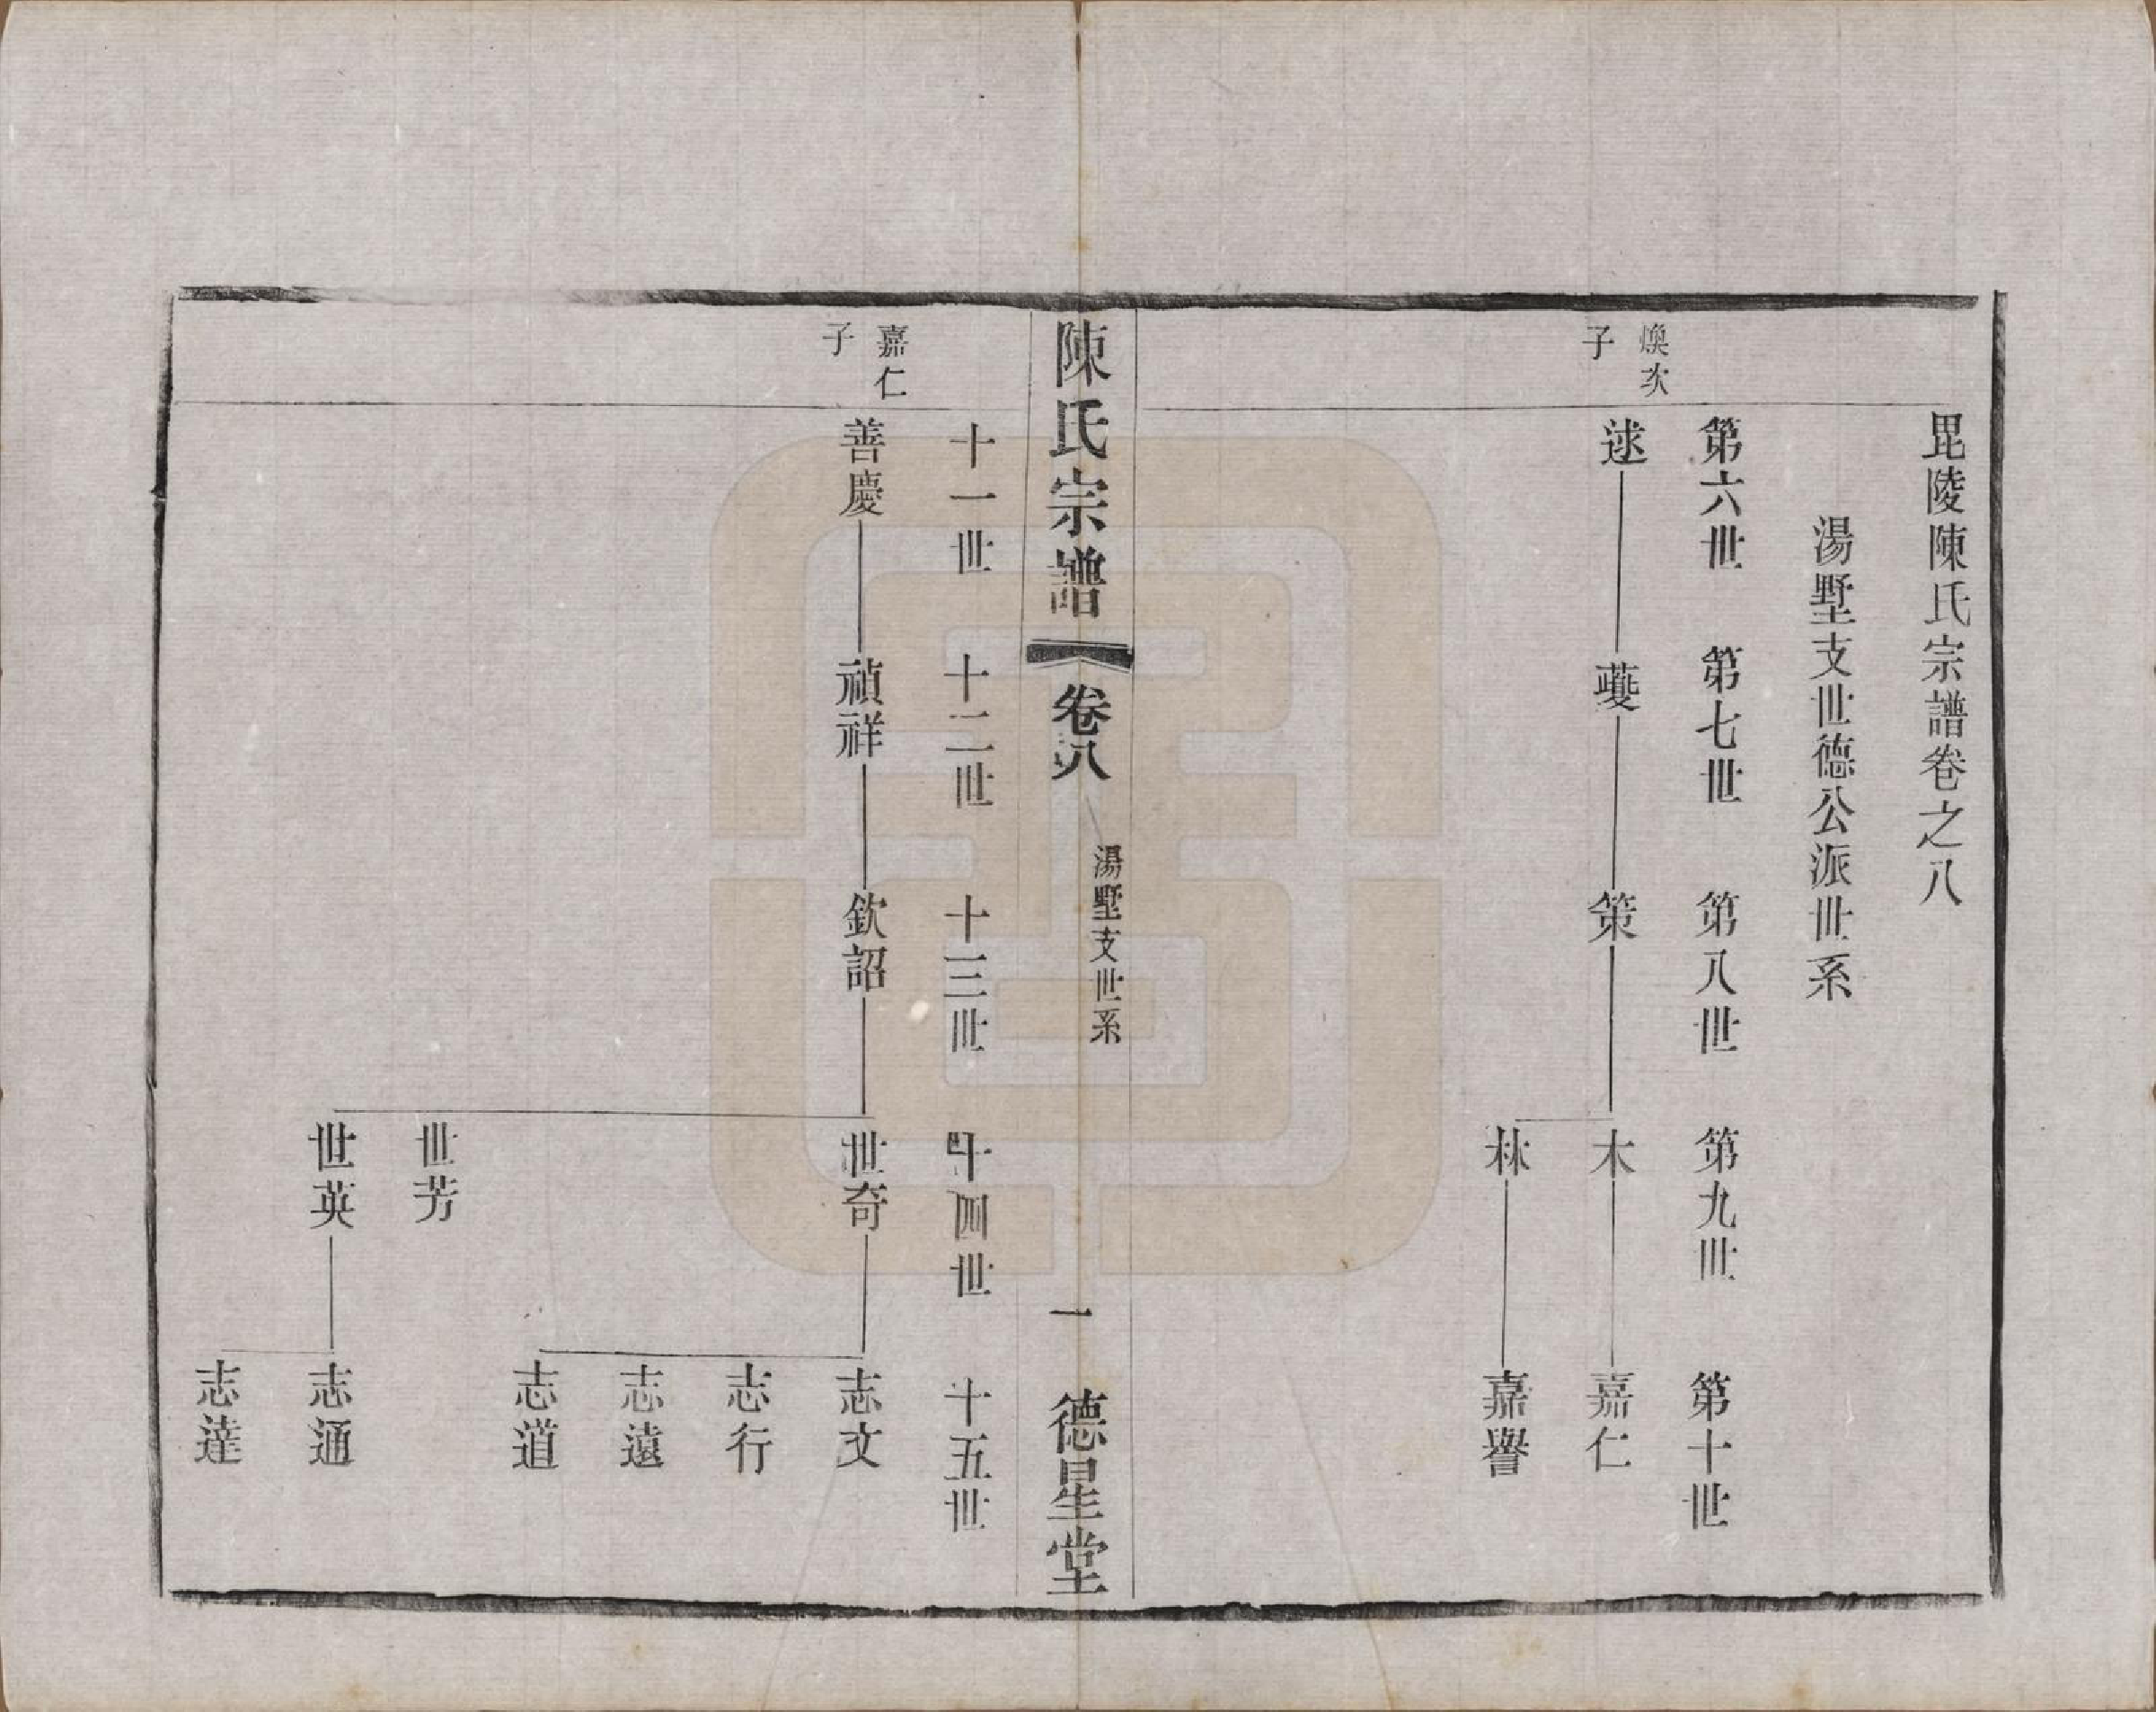 毘陵陳氏宗譜卷之八
湯墅支世德公派世系
第六世　第七世　第八世　第九世　第十世
煥次子
逑　虁　策　木　嘉仁
林　嘉譽
陳氏宗譜　卷八　湯墅支世系　一　德星堂
十一世　十二世　十三世　十四世　十五世
嘉仁子
善慶　禎祥　欽詔　世奇　志文
志行
志遠
志道
世芳
世英　志通
志達